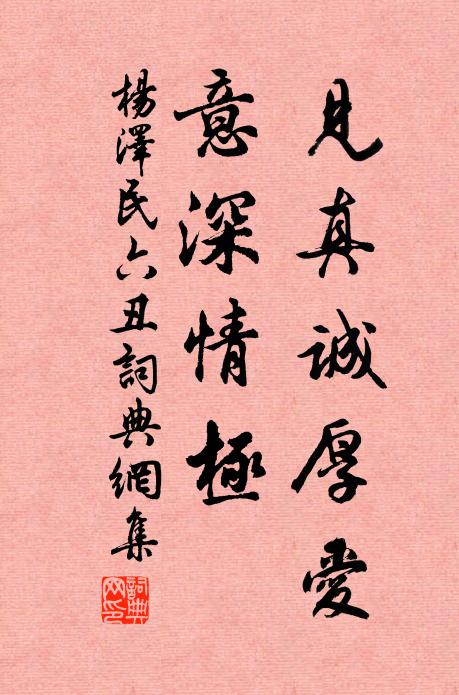 見真誠厚愛
意深情極
楊澤民六丑詞典網集
詞典网印